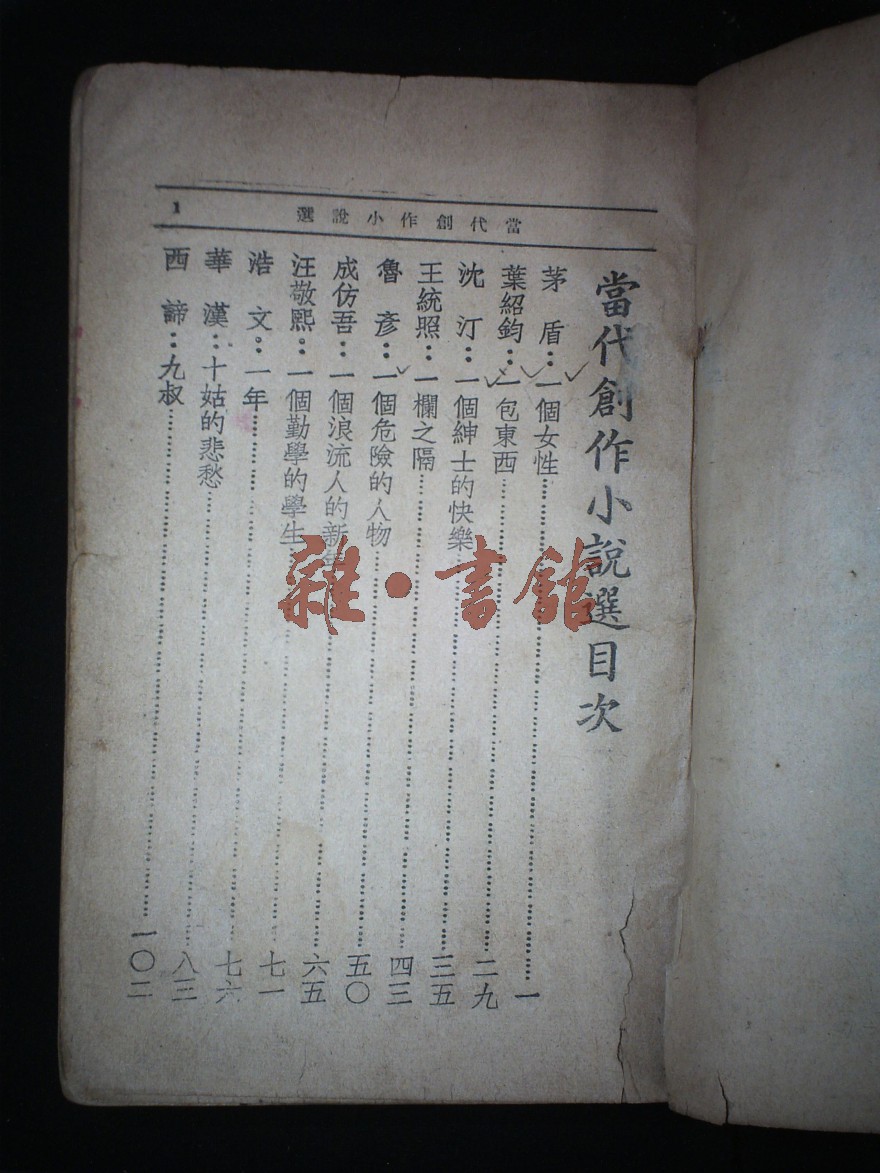 當代創作小說選
1
當代創作小說選目次
茅盾：一個女性……一
葉紹鈞：一包東西……二九
沈汀：一個紳士的快樂……三五
王統照：一欄之隔……四三
魯彥：一個危險的人物……五〇
成仿吾：一個浪流人的新年……六五
汪敬熙：一個勤學的學生……七一
浩文：一年……七六
華漢：十姑的悲愁……八三
西諦：九叔……一〇二
雜·書館